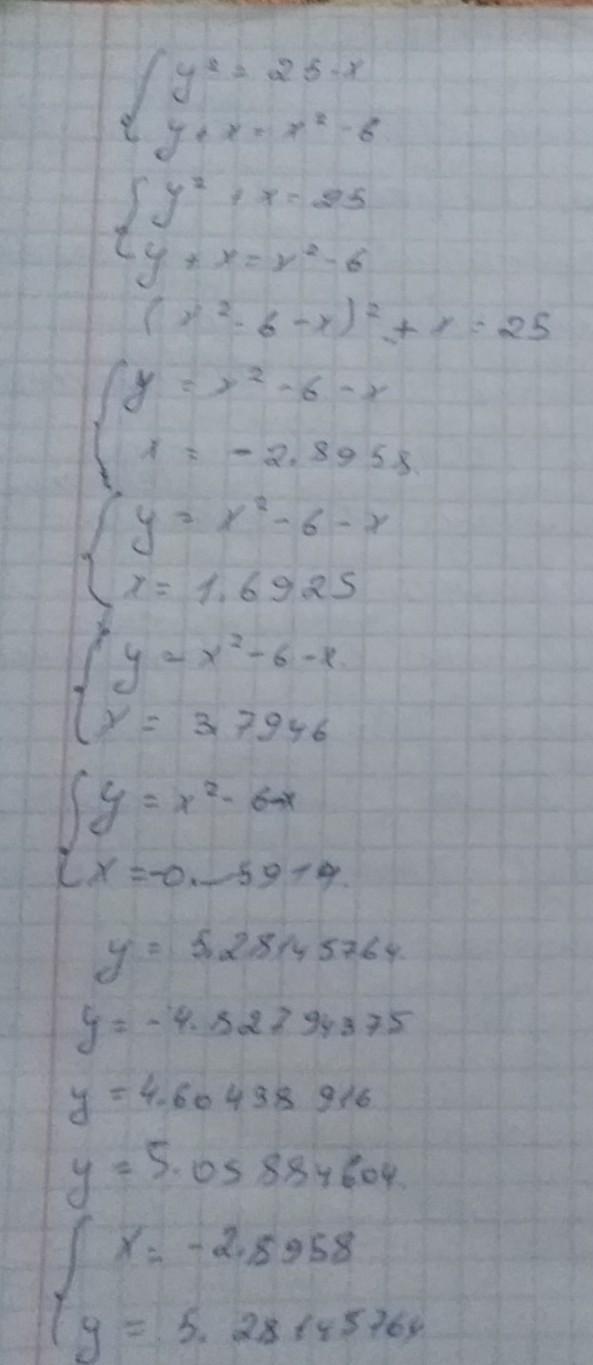 y² = 25-x
y+x = x² -6
y² + x = 25
y + x = x² - 6
(x² - 6 - x)² + x = 25
y = x² - 6 - x
x = -2.8958
y = x² - 6 - x
x = 1.6925
y = x² - 6 - x
x = 3.7946
y = x² - 6-x
y = 5.28145764
y = 4.60498916
y = 5.05884604
x = -2.8958
y = 5.28145764